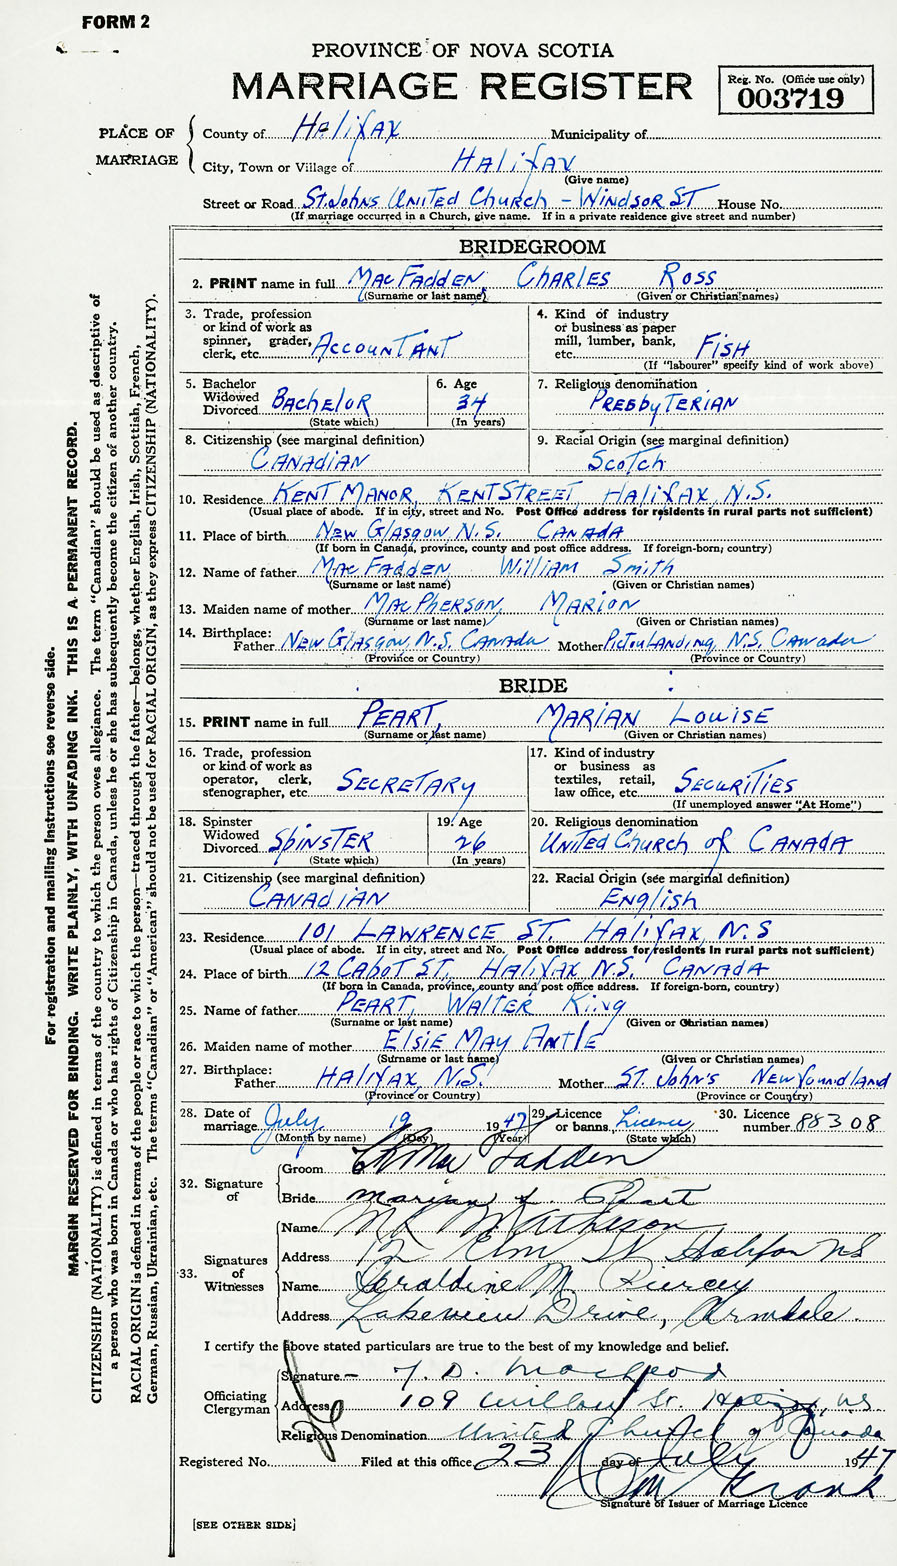 FORM 2
PROVINCE OF NOVA SCOTIA
MARRIAGE REGISTER
Reg. No. (Office use only)
003719
PLACE OF MARRIAGE
County of Halifax Municipality of
City, Town or Village of Halifax
(Give name)
Street or Road St. Johns United Church - Windsor St House No.
(If marriage occurred in a Church, give name. If in a private residence give street and number)
BRIDEGROOM
2. PRINT name in full MacFadden, Charles Ross
(Surname or last name) (Given or Christian names)
3. Trade, profession or kind of work as spinner, grader, clerk, etc. Accountant
4. Kind of industry or business as paper mill, lumber, bank, etc. Fish
(If "labourer" specify kind of work above)
5. Bachelor Widowed Divorced Bachelor
(State which)
6. Age 34
(In years)
7. Religious denomination
Presbyterian
8. Citizenship (see marginal definition)
Canadian
9. Racial Origin (see marginal definition)
Scotch
10. Residence Kent Manor, Kent Street, Halifax, N.S.
(Usual place of abode. If in city, street and No. Post Office address for residents in rural parts not sufficient)
11. Place of birth New Glasgow N.S. Canada
(If born in Canada, province, county and post office address. If foreign-born, country)
12. Name of father MacFadden William Smith
(Surname or last name) (Given or Christian names)
13. Maiden name of mother MacPherson, Marion
(Surname or last name) (Given or Christian names)
14. Birthplace: Father New Glasgow, N.S. Canada Mother Pictou Landing, N.S. Canada
(Province or Country) (Province or Country)
BRIDE
15. PRINT name in full Peart, Marian Louise
(Surname or last name) (Given or Christian names)
16. Trade, profession or kind of work as operator, clerk, stenographer, etc. Secretary
17. Kind of industry or business as textiles, retail, law office, etc. Securities
(If unemployed answer "At Home")
18. Spinster Widowed Divorced Spinster
(State which)
19. Age 26
(In years)
20. Religious denomination
United Church of Canada
21. Citizenship (see marginal definition)
Canadian
22. Racial Origin (see marginal definition)
English
23. Residence 101 Lawrence St. Halifax, N.S
(Usual place of abode. If in city, street and No. Post Office address for residents in rural parts not sufficient)
24. Place of birth 12 Cabot St, Halifax N.S. Canada
(If born in Canada, province, county and post office address. If foreign-born, country)
25. Name of father Peart, Walter King
(Surname or last name) (Given or Christian names)
26. Maiden name of mother Elsie May Antle
(Surname or last name) (Given or Christian names)
27. Birthplace: Father Halifax, N.S. Mother St. John's Newfoundland
(Province or Country) (Province or Country)
28. Date of marriage July 19 1947
(Month by name) (Day) (Year)
29. Licence or banns Licence
(State which)
30. Licence number 88308
32. Signature of
Groom MacFadden
Bride Marian L. Peart
33. Signatures of Witnesses
Name Matheson
Address 12 Elm St Halifax NS
Name Geraldine M. Piercey
Address Lakeview Drive, Armdale
I certify the above stated particulars are true to the best of my knowledge and belief.
Officiating Clergyman
Signature D. MacLeod
Address 109 Willow St. Halifax, N.S.
Religious Denomination United Church of Canada
Registered No. Filed at this office 23 day of July 1947
Signature of Issuer of Marriage Licence
[SEE OTHER SIDE]
For registration and mailing instructions see reverse side.
MARGIN RESERVED FOR BINDING. WRITE PLAINLY, WITH UNFADING INK. THIS IS A PERMANENT RECORD.
CITIZENSHIP (NATIONALITY) is defined in terms of the country to which the person owes allegiance. The term "Canadian" should be used as descriptive of
a person who was born in Canada or who has rights of Citizenship in Canada, unless he or she has subsequently become the citizen of another country.
RACIAL ORIGIN is defined in terms of the people or race to which the person—traced through the father—belongs, whether English, Irish, Scottish, French,
German, Russian, Ukrainian, etc. The terms "Canadian" or "American" should not be used for RACIAL ORIGIN, as they express CITIZENSHIP (NATIONALITY).